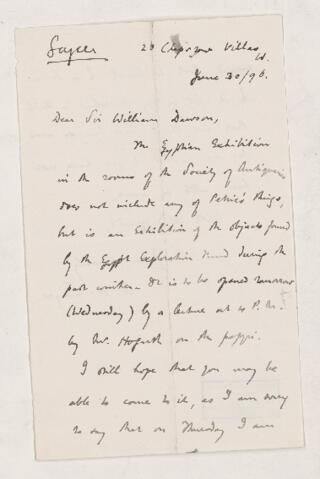 Sayce
23 Chepstow Villas
W.
June 30/96.
Dear Sir William Dawson,
The Egyptian Exhibition
in the rooms of the Society of Antiquaries
does not include any of Petrie's things,
but is an Exhibition of the objects found
by the Egypt Exploration Fund during the
past winter. It is to be opened tomorrow
(Wednesday) by a lecture at 5 P.M.
by Mr. Hogarth on the papyri.
I still hope that you may be
able to come to it, as I am sorry
to say that on Thursday I am